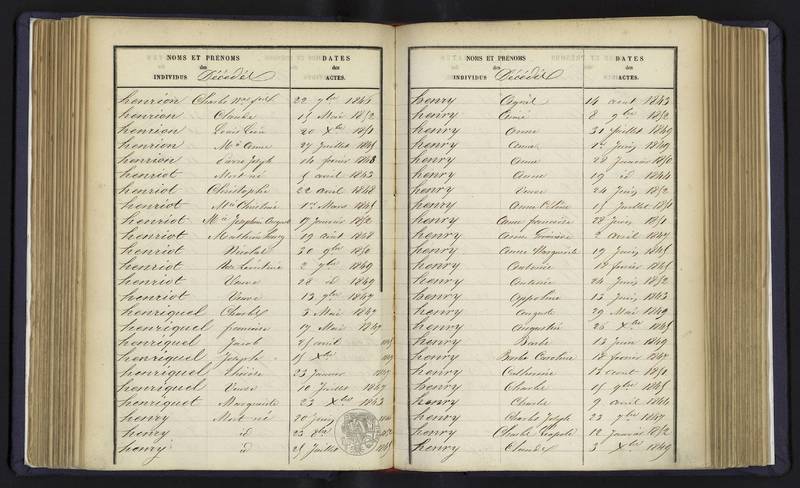 NOMS ET PRÉNOMS
des
INDIVIDUS Décédés
DATES
des
ACTES.
henrion Charles 22 9bre 1845
henrion Claude 15 Mai 1852
henrion Louis 20 Xbre 1851
henrion Mie Anne 27 Juillet 1845
henrion Pierre Joseph 14 février 1843
henriot Mort né 5 avril 1843
henriot Christophe 22 avril 1848
henriot Mie Christine 1er Mars 1845
henriot Mie Josephine 17 Janvier 1852
henriot Mathieu 19 août 1848
henriot Nicolas 30 9bre 1850
henriot 2 9bre 1849
henriot Veuve 28 id 1849
henriot Veuve 13 9bre 1847
henriquel Charles 3 Mai 1847
henriquel françoise 17 Mai 1849
henriquel Jacob 25 avril
henriquel Joseph 15 Xbre
henriquel Thérèse 23 Janvier
henriquel Veuve 10 Juillet 1847
henriquet Marguerite 23 Xbre 1843
henry Mort né 20 Juin
henry id 23 8bre
henry id 25 Juillet 1845
NOMS ET PRÉNOMS
des
INDIVIDUS Décédés
DATES
des
ACTES.
henry 14 août 1843
henry Aimé 8 9bre 1852
henry Anne 31 Juillet 1849
henry Anne 1er Juin 1849
henry Anne 28 Janvier 1850
henry Anne 19 id 1844
henry 24 Juin 1852
henry Anne Céline 15 Juillet 1851
henry Anne françoise 28 Juin 1851
henry Anne 2 avril 1847
henry Anne Marguerite 19 Juin 1845
henry Antoine 18 février 1845
henry Antoine 24 Juin 1852
henry Appoline 13 Juin 1843
henry Auguste 29 Mai 1849
henry Augustin 26 Xbre 1845
henry Barbe 13 Juin 1849
henry Barbe Caroline 18 février 1847
henry Catherine 13 août 1851
henry Charles 15 9bre 1845
henry Charles 9 avril 1844
henry Charles Joseph 23 7bre 1847
henry Charles Léopold 12 Janvier 1852
henry Claude 3 Xbre 1849